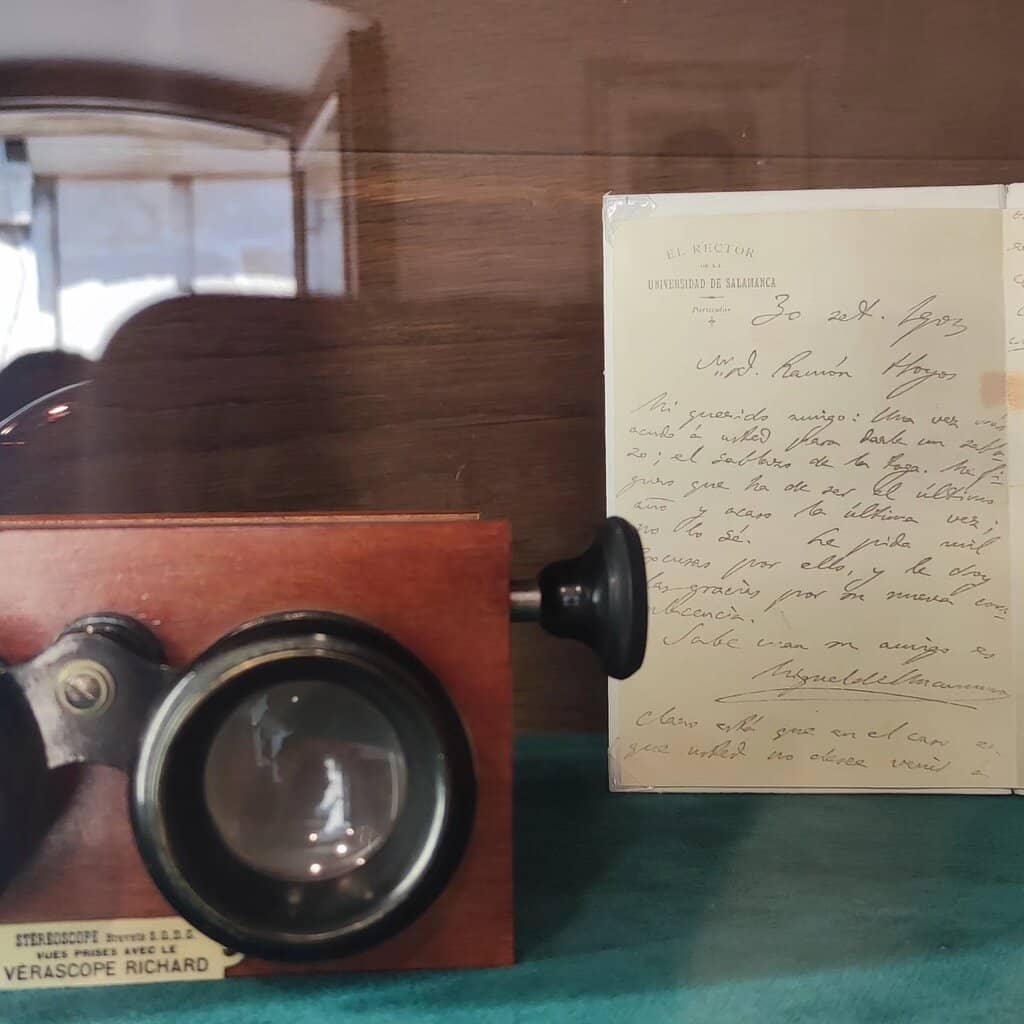 EL RECTOR
DE LA
UNIVERSIDAD DE SALAMANCA
Particular
30 set.
D. Ramón Hoyos
Mi querido amigo: Una vez más
acudo á usted para darle un sabla-
zo; el sablazo de la toga. Me fi-
guro que ha de ser el último
año y acaso la última vez;
no lo sé. Le pido mil
excusas por ello, y le doy
las gracias por su nueva
Sabe cuan su amigo es
Miguel de Unamuno
Claro está que en el caso
que usted no desee venir a
STÉRÉOSCOPE Breveté S.G.D.G.
VUES PRISES AVEC LE
VÉRASCOPE RICHARD